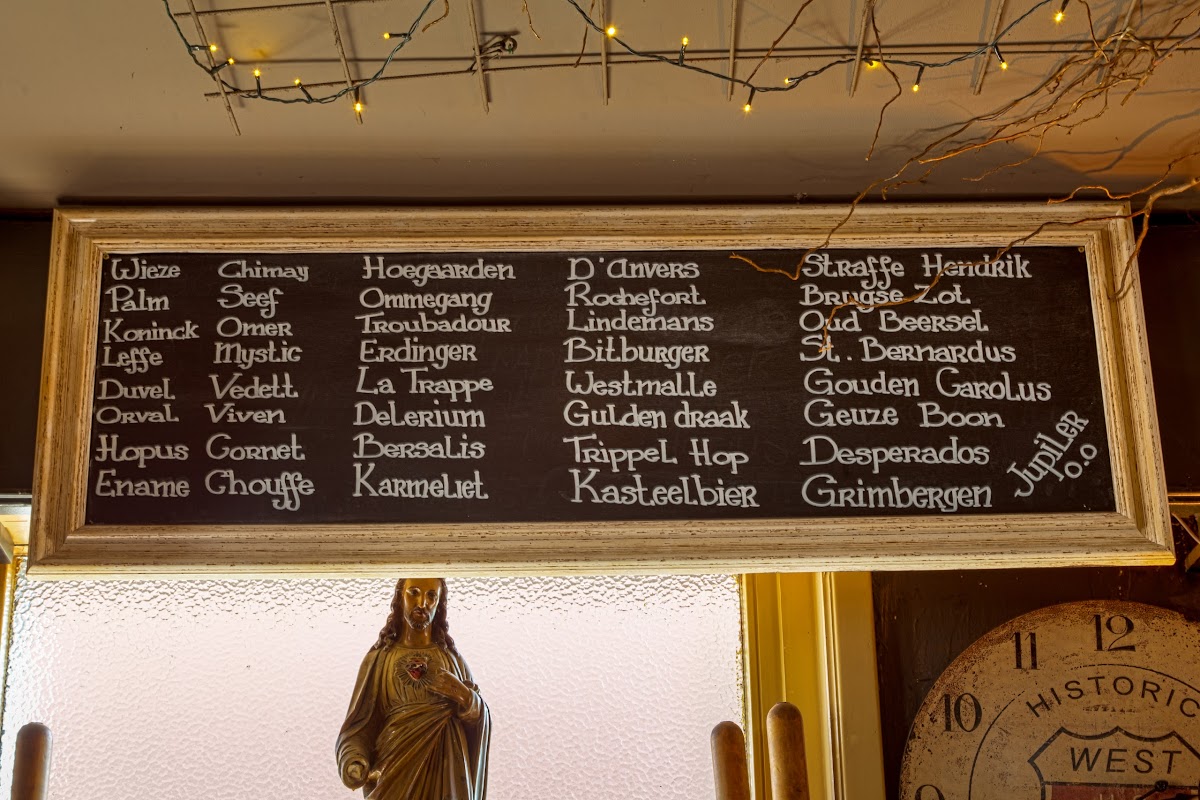 Wieze
Palm
Koninck
Leffe
Duvel
Orval
Hopus
Ename
Chimay
Seef
Omer
Mystic
Vedett
Viven
Cornet
Chouffe
Hoegaarden
Ommegang
Troubadour
Erdinger
La Trappe
Delerium
Bersalis
Karmeliet
D'Anvers
Rochefort
Lindemans
Bitburger
Westmalle
Gulden draak
Trippel Hop
Kasteelbier
Straffe Hendrik
Brugse Zot
Oud Beersel
St. Bernardus
Gouden Carolus
Geuze Boon
Desperados
Grimbergen
Jupiler
0.0
10
11
12
HISTORIC
WEST